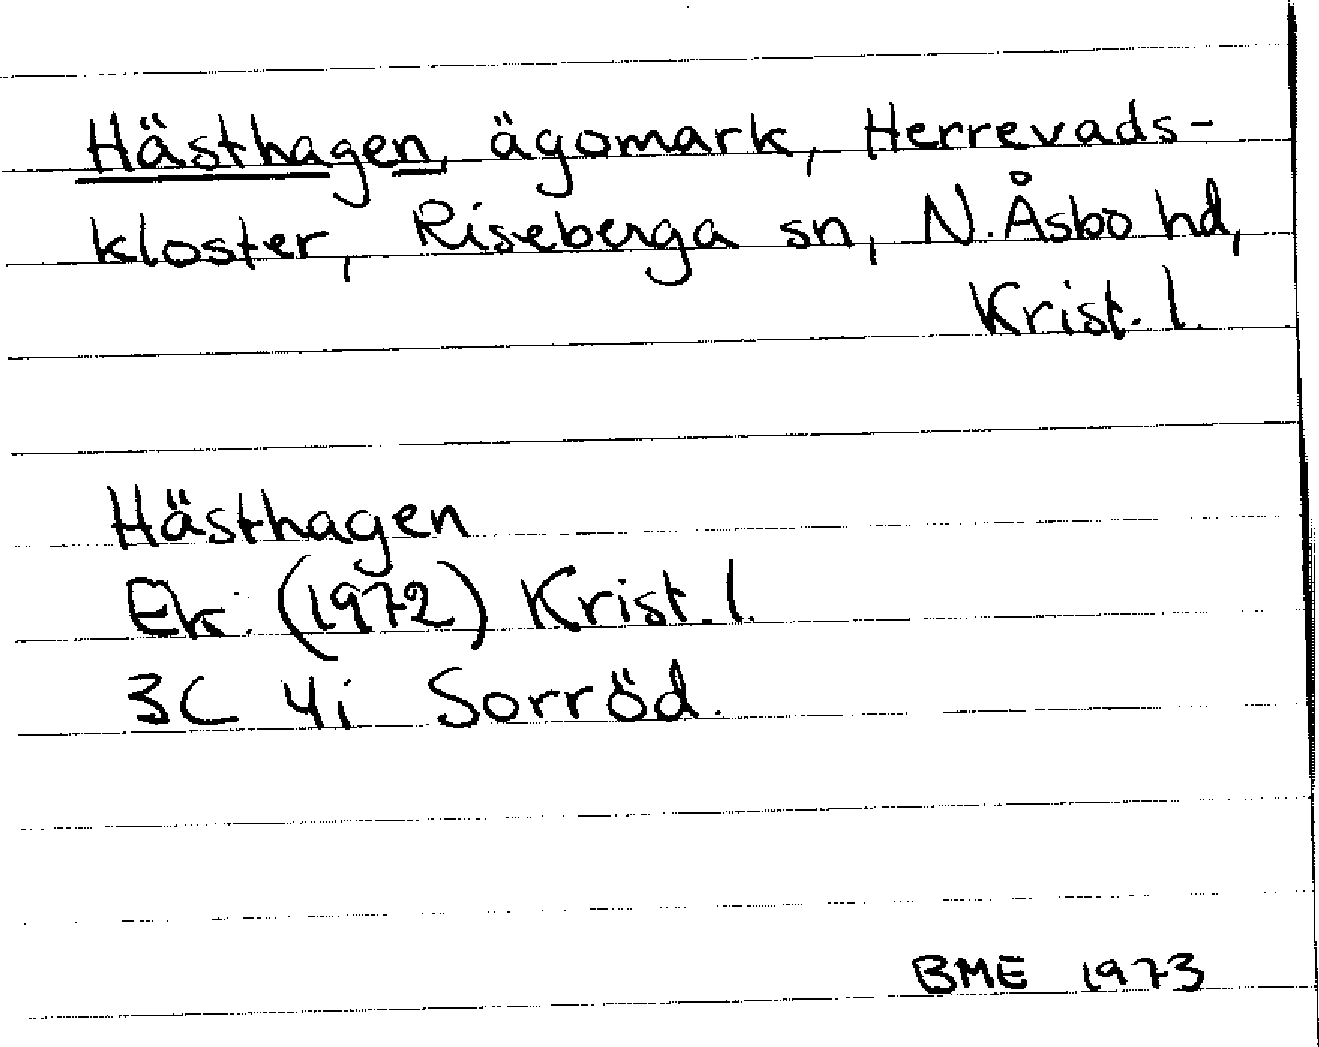 Hästhagen, ägomark, Herrevads-
kloster, Riseberga sn, N. Åsbo hd,
Krist. l.
Hästhagen
Ek. (1972) Krist. l.
3C 4i Sorröd.
BME 1973